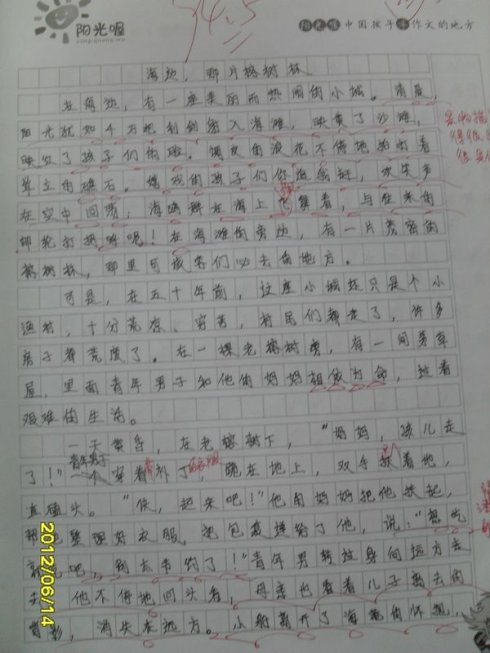 阳光喔
阳光喔 中国孩子 作文的地方
海边，那片榕树林
在海边，有一座美丽而热闹的小城。清晨，
阳光犹如千万把利剑射入海滩，映黄了沙滩，
映红了孩子们的脸。调皮的浪花不停地拍打着
耸立的礁石。嬉戏的孩子们你追我赶，欢笑声
在空中回荡，海鸥群在海上飞翔着，与往来的
邮轮打招呼呢！在海滩的旁边，有一片茂密的
榕树林，那里可孩子们必去的地方。
可是，在五十年前，这座小城还只是个小
渔村，十分荒凉、穷苦，村民们都走了，许多
房子都荒废了。在一棵老榕树旁，有一间茅草
屋，里面青年男子和他的妈妈相依为命，过着
艰难的生活。
一天黄昏，在老榕树下，“妈妈，孩儿走
了！”一个穿着补丁，跪在地上，双手扶着地，
直磕头。“快，起来吧！”他的妈妈把他扶起，
帮他整理好衣服，把包裹递给了他，说：“
吧，别太节约了！”青年男转过身向远方去
去，他不停地回头看，母亲也看着儿子离去的
背影，消失在远方。小船离开了海港的怀抱，
2012/06/14